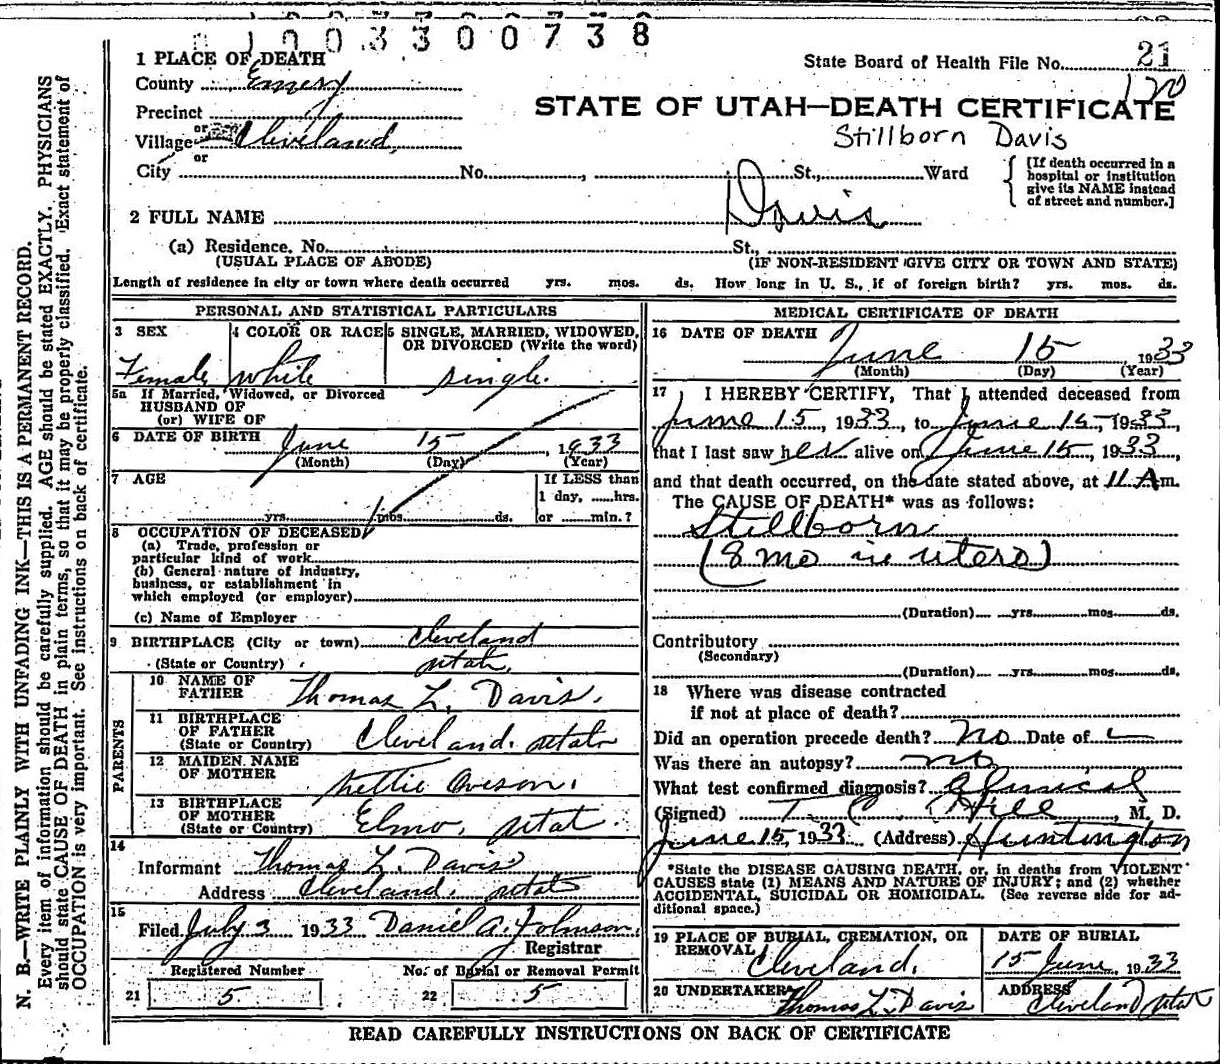 01003300738
1 PLACE OF DEATH
State Board of Health File No. 21
County Emery
120
Precinct
STATE OF UTAH—DEATH CERTIFICATE
or
Village Cleveland,
Stillborn Davis
or
City No. , St., Ward
[If death occurred in a
hospital or institution
give its NAME instead
of street and number.]
2 FULL NAME Davis
(a) Residence. No. St.,
(USUAL PLACE OF ABODE) (IF NON-RESIDENT GIVE CITY OR TOWN AND STATE)
Length of residence in city or town where death occurred yrs. mos. ds. How long in U. S., if of foreign birth? yrs. mos. ds.
PERSONAL AND STATISTICAL PARTICULARS
3 SEX
Female
4 COLOR OR RACE
white
5 SINGLE, MARRIED, WIDOWED,
OR DIVORCED (Write the word)
single.
5a If Married, Widowed, or Divorced
HUSBAND OF
(or) WIFE OF
6 DATE OF BIRTH June 15, 1933
(Month) (Day) (Year)
7 AGE
yrs. mos. ds.
If LESS than
1 day, ......hrs.
or ........min.?
8 OCCUPATION OF DECEASED
(a) Trade, profession or
particular kind of work
(b) General nature of industry,
business, or establishment in
which employed (or employer)
(c) Name of Employer
9 BIRTHPLACE (City or town) Cleveland
(State or Country) Utah,
PARENTS
10 NAME OF
FATHER Thomas L. Davis.
11 BIRTHPLACE
OF FATHER
(State or Country) Cleveland. Utah
12 MAIDEN NAME
OF MOTHER Nettie Oveson.
13 BIRTHPLACE
OF MOTHER
(State or Country) Elmo, Utah
14
Informant Thomas L. Davis
Address Cleveland, Utah
15
Filed July 3 1933 Daniel A. Johnson.
Registrar
Registered Number No. of Burial or Removal Permit
21 5 22 5
MEDICAL CERTIFICATE OF DEATH
16 DATE OF DEATH June 15, 1933
(Month) (Day) (Year)
17 I HEREBY CERTIFY, That I attended deceased from
June 15, 1933, to June 15, 1933,
that I last saw her alive on June 15, 1933,
and that death occurred, on the date stated above, at 11 A m.
The CAUSE OF DEATH* was as follows:
Stillborn
(8 mo in utero)
(Duration) yrs. mos. ds.
Contributory
(Secondary)
(Duration) yrs. mos. ds.
18 Where was disease contracted
if not at place of death?
Did an operation precede death? No Date of
Was there an autopsy? no
What test confirmed diagnosis? Clinical
(Signed) T. C. Hill, M. D.
June 15, 1933 (Address) Huntington
*State the DISEASE CAUSING DEATH, or, in deaths from VIOLENT
CAUSES state (1) MEANS AND NATURE OF INJURY; and (2) whether
ACCIDENTAL, SUICIDAL OR HOMICIDAL. (See reverse side for ad-
ditional space.)
19 PLACE OF BURIAL, CREMATION, OR
REMOVAL
Cleveland.
DATE OF BURIAL
15 June, 1933
20 UNDERTAKER
Thomas L. Davis
ADDRESS
Cleveland Utah
READ CAREFULLY INSTRUCTIONS ON BACK OF CERTIFICATE
N. B.—WRITE PLAINLY WITH UNFADING INK—THIS IS A PERMANENT RECORD.
Every item of information should be carefully supplied. AGE should be stated EXACTLY. PHYSICIANS
should state CAUSE OF DEATH in plain terms, so that it may be properly classified. Exact statement of
OCCUPATION is very important. See instructions on back of certificate.